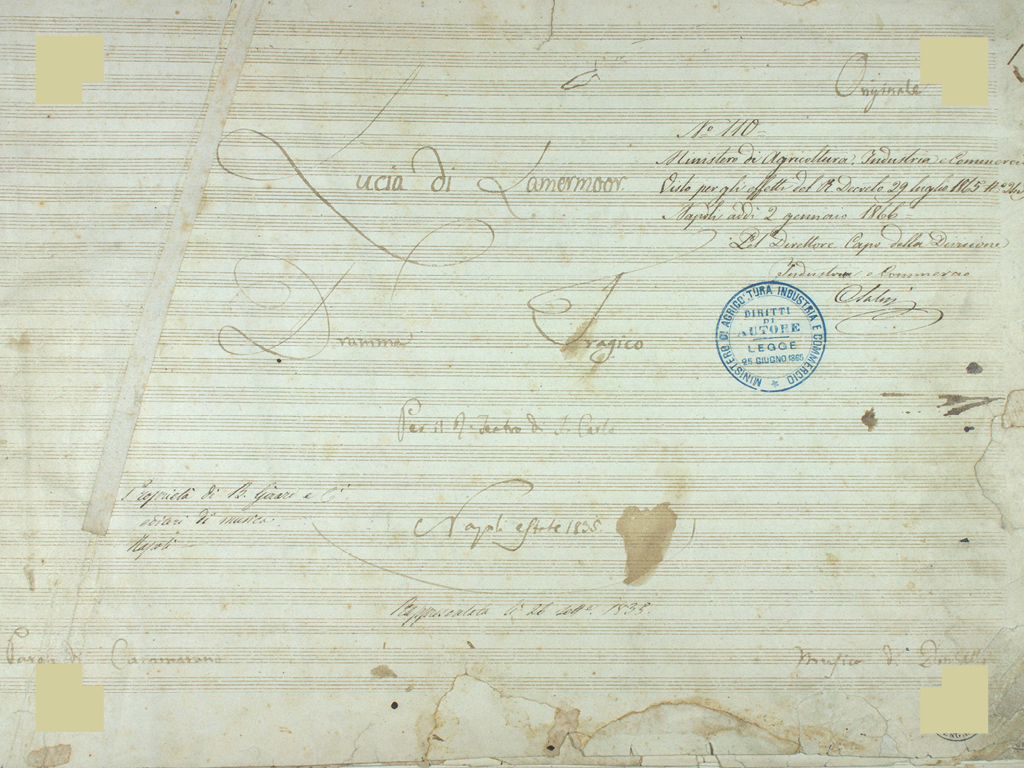 Originale
Nº 110
Ministero di Agricoltura, Industria e Commercio
Visto per gli effetti del R. Decreto 29 luglio 1865 Nº
Napoli addì 2 gennaio 1866
Pel Direttore Capo della Divisione
Industria e Commercio
Lucia di Lamermoor
Dramma Tragico
MINISTERO DI AGRICOLTURA INDUSTRIA E COMMERCIO
DIRITTI
DI
AUTORE
LEGGE
25 GIUGNO 1865
Per il R. Teatro di S. Carlo
Proprietà di B. Girard e Cⁱ
di musica
Napoli
Napoli estate 1835
Rappresentata li 26 1835
Parole di Cammarano
Musica di